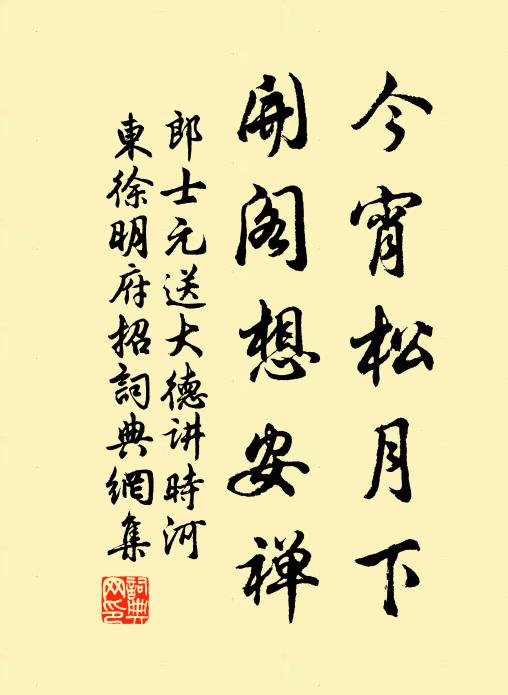 今宵松月下
開阁想安禅
郎士元送大德讲時河
東徐明府招詞典網集